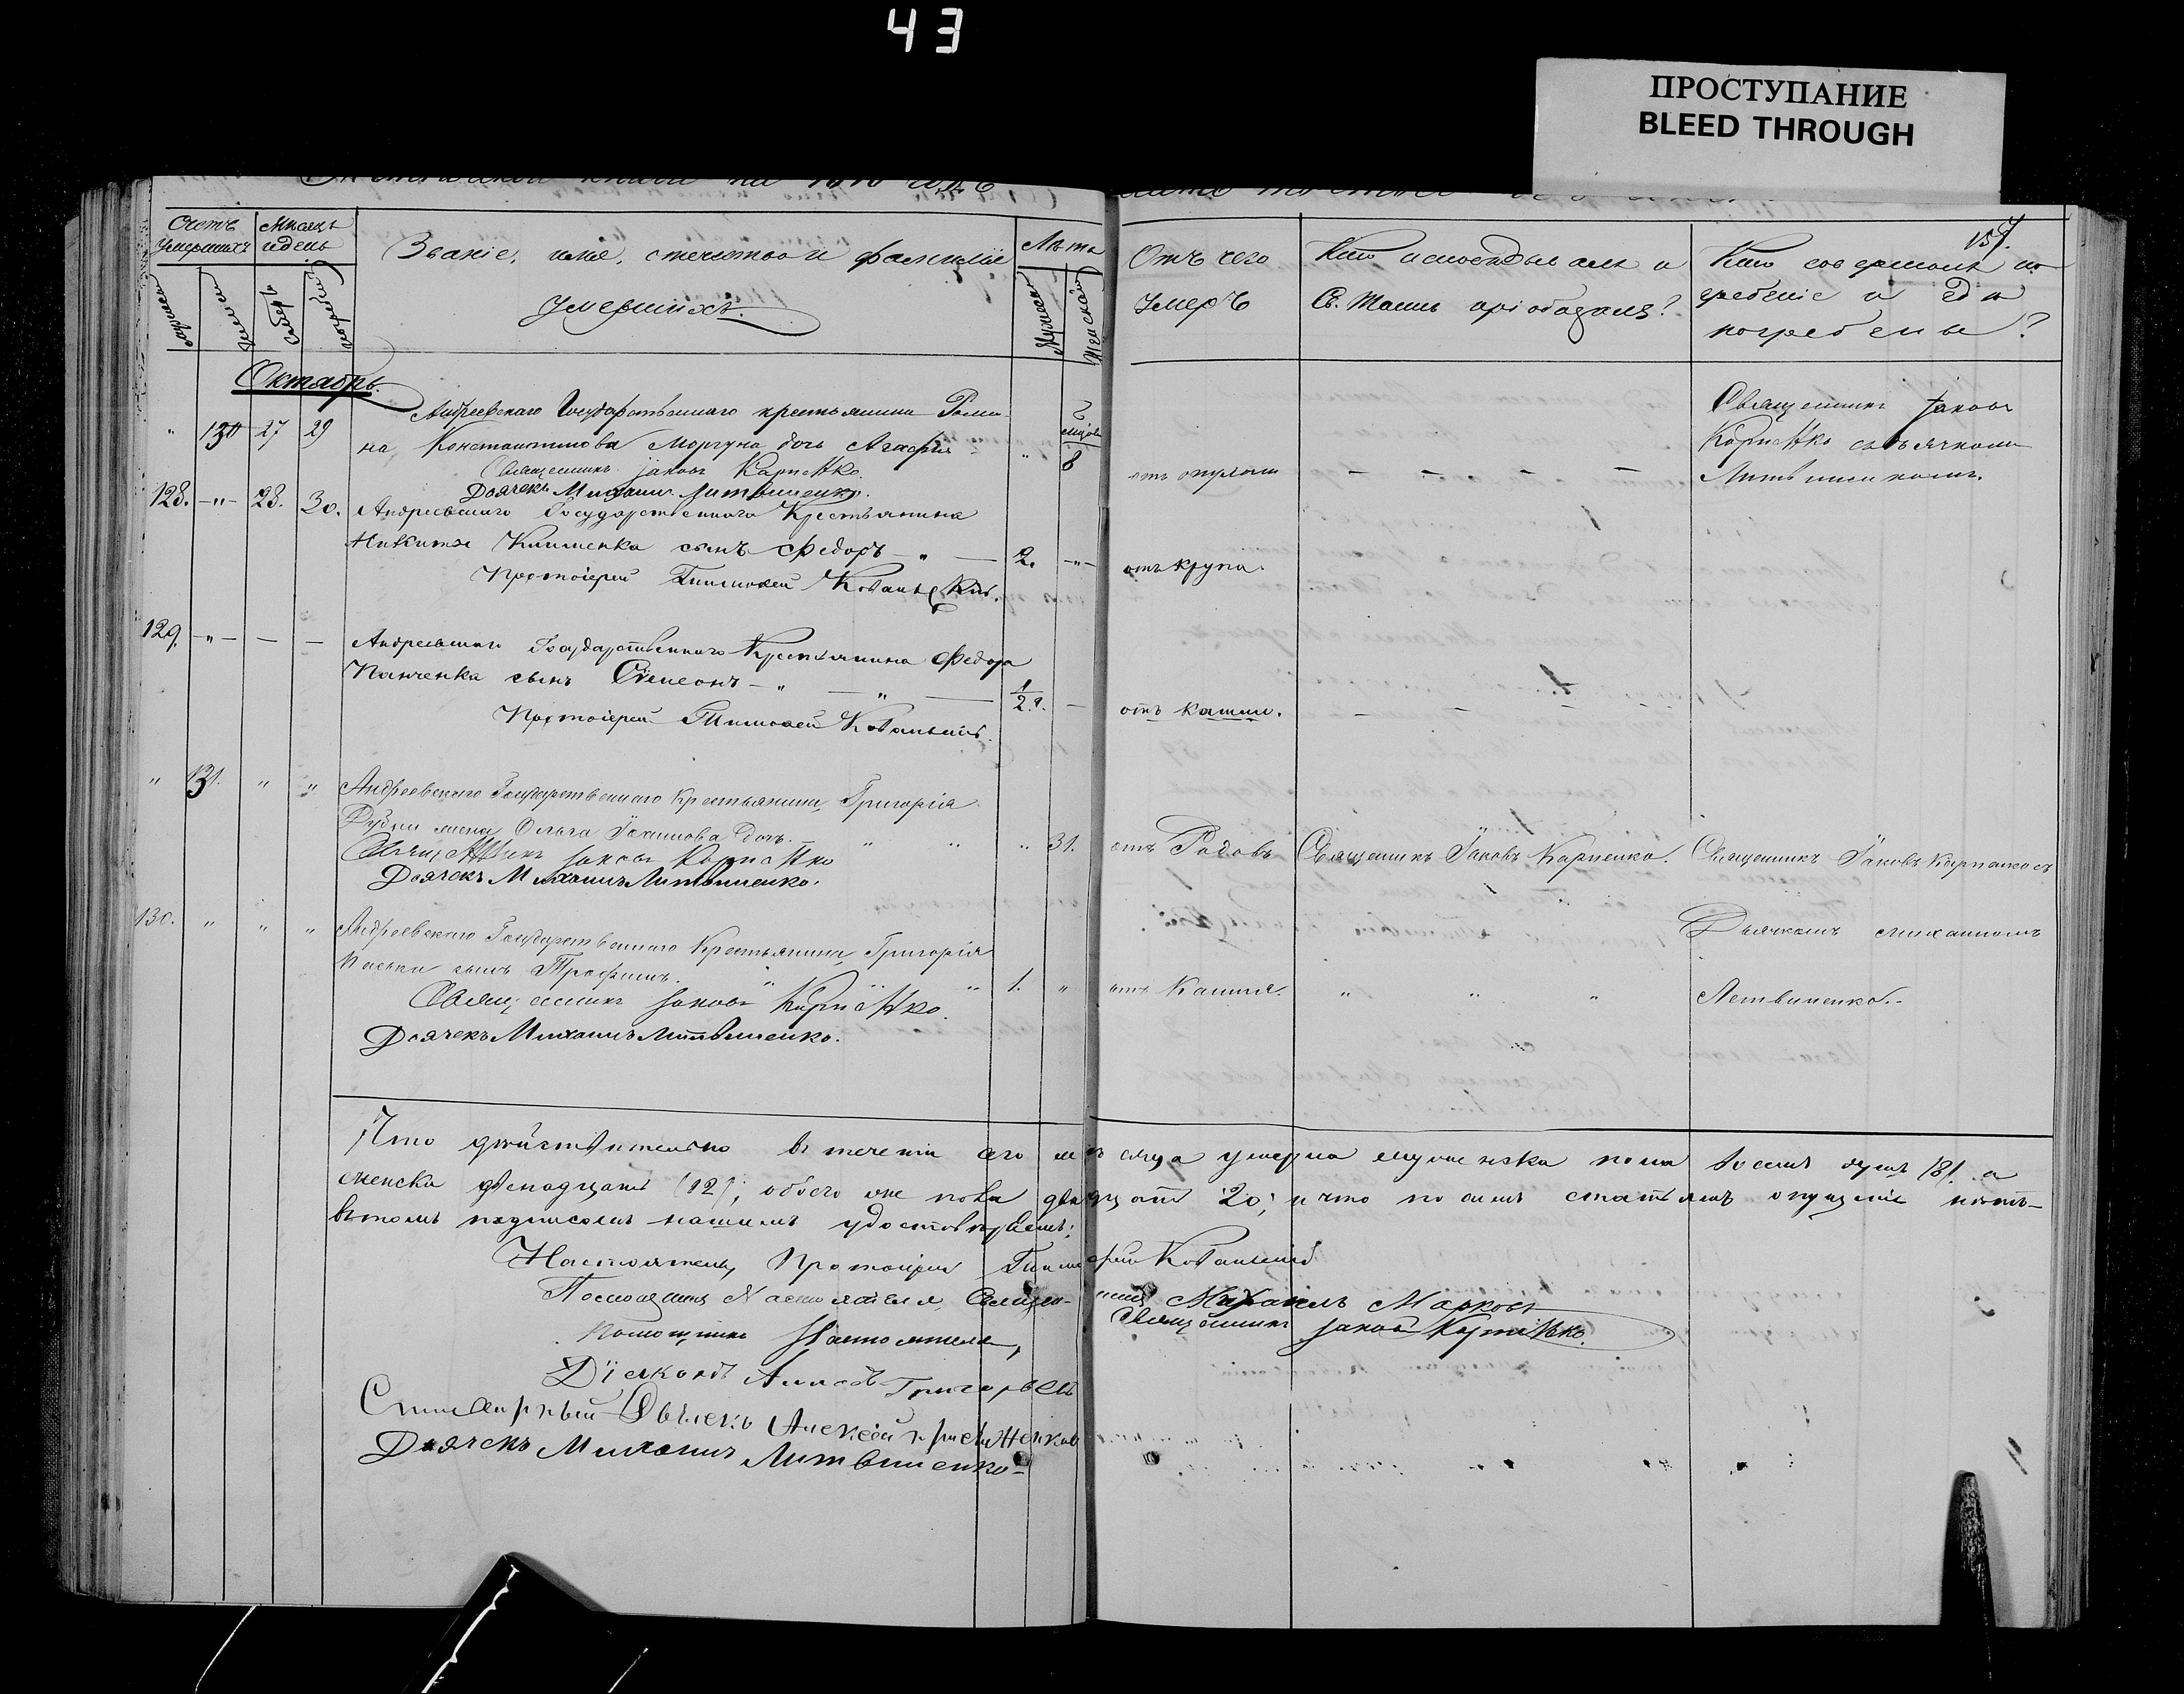 43
ПРОСТУПАНИЕ
BLEED THROUGH
157.
Счетъ умершихъ
Мѣсяцъ и день
Званіе, имя, отчество и фамилія
умершихъ.
Лѣта
Отъ чего
умеръ
Кто исповѣдывалъ и
Св. Таинъ пріобщалъ?
Кто совершалъ по-
гребеніе и гдѣ
погребены?
Октябрь.
" 130 27 29
Андреевскаго Государственнаго крестьянина Рома-
на Константинова Моргуна дочь Агафія " 8
Священникъ Іаковъ Карпенко
Дьячекъ Михаилъ Литвиненко.
Священникъ Іаковъ
Карпенко съ дьячкомъ
128. -"- 28. 30. Андреевскаго Государственнаго Крестьянина
Никиты Клименка сынъ Федоръ - " - 2. -"- отъ крупа.
Протоіерей Тимофей
129. -"- - - Андреевскаго Государственнаго Крестьянина Федора
Панченка сынъ Симеонъ - " - " - 1/2 - отъ кашля.
Протоіерей Тимофей
" 131. " " Андреевскаго Государственнаго Крестьянина Григорія
жена Ольга дочь. " " " 31. отъ Родовъ Священникъ Іаковъ Карпенко. Священникъ Іаковъ Карпенко съ
Священникъ Іаковъ Карпенко
Дьячекъ Михаилъ Литвиненко.
130. " " " Андреевскаго Государственнаго Крестьянина Григорія
Дьячкомъ Михаиломъ
сынъ Трофимъ. " " " 1. " отъ Кашля. " " " Летвиненко.-
Священникъ Іаковъ Карпенко.
Дьячекъ Михаилъ Литвиненко.
Что дѣйствительно въ теченіи сего мѣсяца умерло мужеска пола восемь душъ (8). а
женска двѣнадцать (12), обоего же пола двадцать 20; и что по симъ статьямъ опущенія нѣтъ-
въ томъ подписомъ нашимъ удостовѣряемъ:
Настоятель, Протоіерей Тимофей
Помощникъ Настоятеля, Священникъ Михаилъ Марковъ
Помощникъ Настоятеля, Священникъ Іаковъ Карпенко.
Діяконъ Григорьевъ
Дьячекъ Алексей
Дьячекъ Михаилъ Литвиненко-